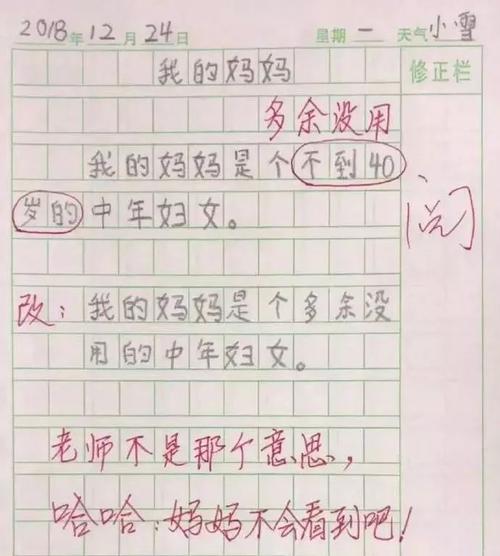 2018年12月24日 星期一 天气小雪
我的妈妈
修正栏
多余没用
我的妈妈是个不到40
岁的中年妇女。
阅
改：我的妈妈是个多余没
用的中年妇女。
老师不是那个意思，
哈哈：妈妈不会看到吧！